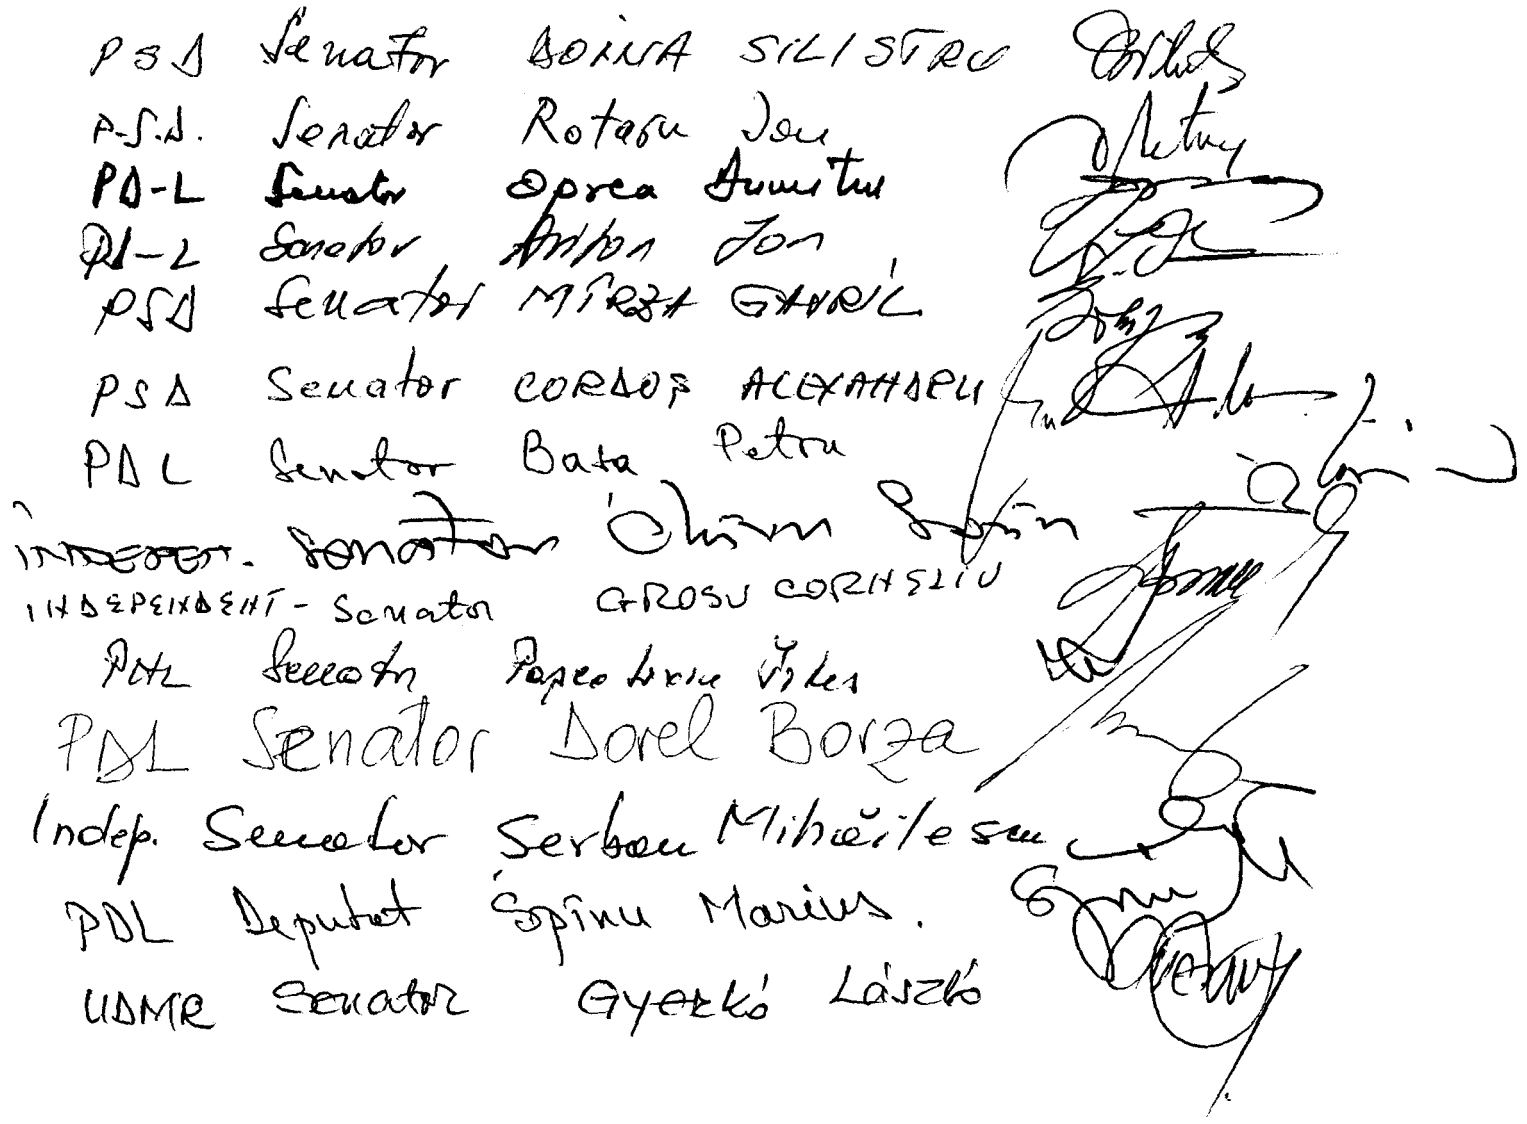 PSD Senator DOINA SILISTRU
P.S.D. Senator Rotaru Ion
PD-L Senator Oprea Dumitru
PD-L Senator Ariton Ion
PSD Senator MÎRZA GAVRIL
PSD Senator CORDOȘ ALEXANDRU
PDL Senator Basa Petru
INDEPEN. Senator Chivu Sorin
INDEPENDENT - Senator GROSU CORNELIU
PNL Senator Popa
PDL Senator Dorel Borza
Indep. Senator Serban Mihăilescu
PDL Deputat Spînu Marius.
UDMR Senator Gyerkó László